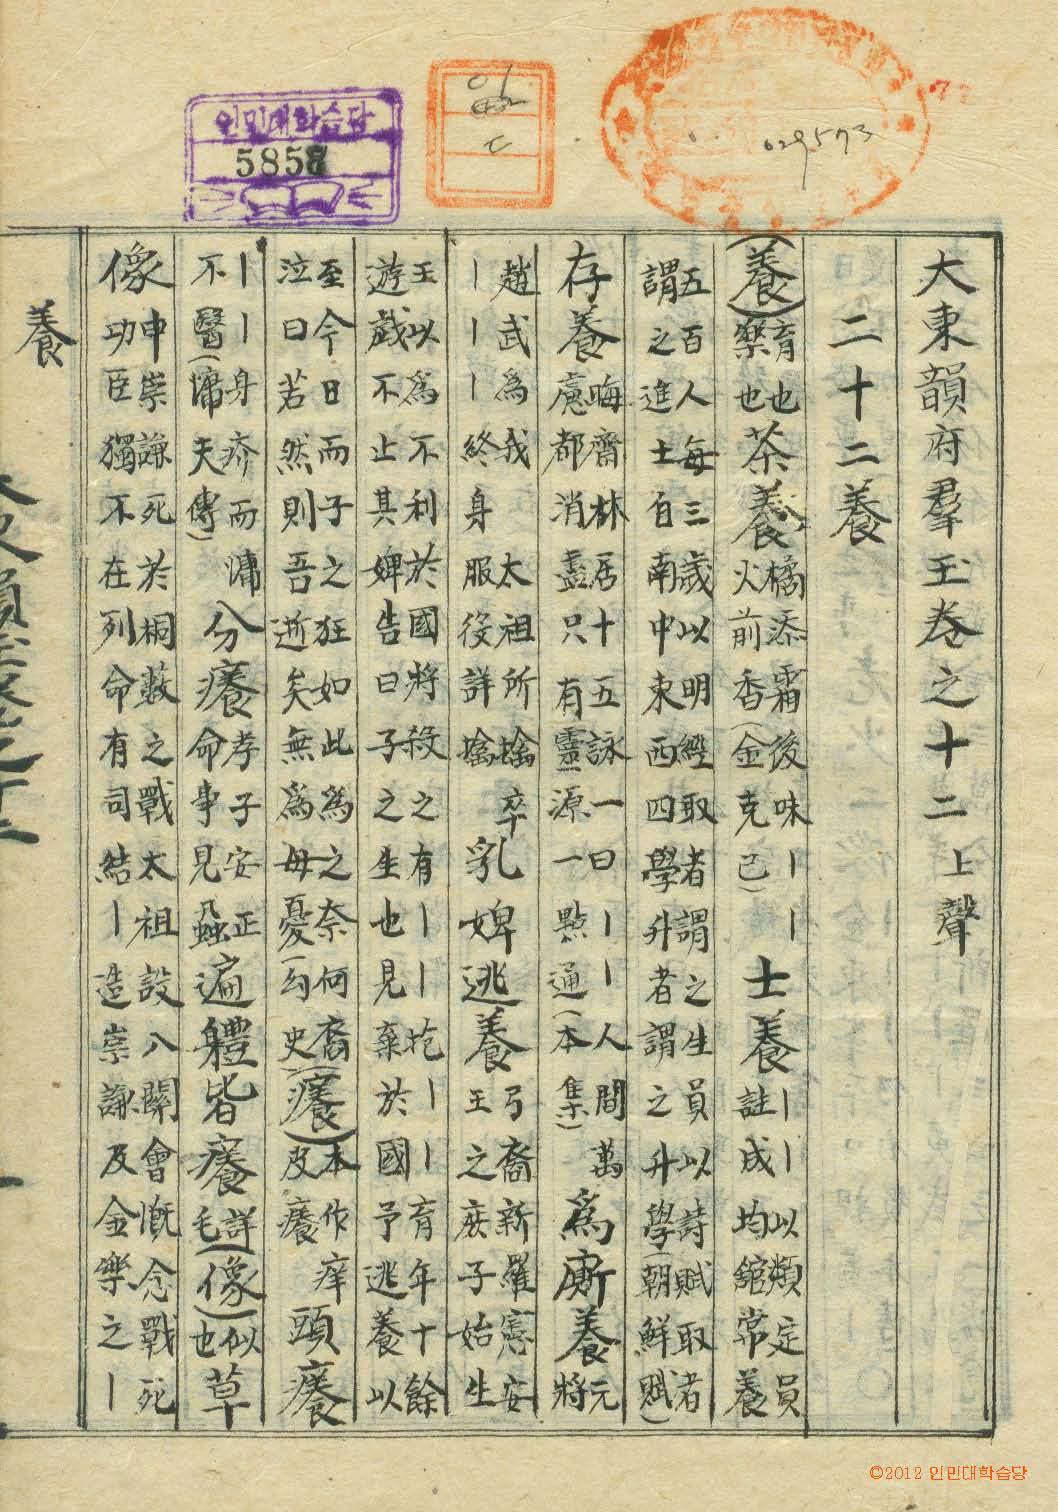 인민대학습당
029573
大東韻府羣玉卷之十二 上聲
二十二養
(養)育也樂也茶養橘添霜後味丨丨火前香(金克己)士養丨丨以類定員註成均舘常養
五百人每三歲以明經取者謂之生員以詩賦取者謂之進士自南中東西四學升者謂之升學(朝鮮賦)
存養晦齋林居十五詠一曰丨丨人間萬慮都消盡只有靈源一點通(本集)爲廝養元將
趙武爲我太祖所擒卒丨丨丨終身服役詳擒乳婢逃養弓裔新羅憲安王之庶子始生
王以爲不利於國將殺之有丨丨抱丨丨育年十餘遊戲不止其婢告曰子之生也見棄於國予逃養以
至今日而子之狂如此爲之奈何裔泣曰若然則吾逝矣無爲母憂(勾史)(癢)本作痒皮癢頭癢
丨丨身疥而慵不醫(慵夫傳)分癢孝子安正命事見蝨遍體皆癢詳毛(像)似也草
像申崇謙死於桐藪之戰太祖設八關會慨念戰死功臣獨不在列命有司結丨造崇謙及金樂之丨
養
©2012 인민대학습당